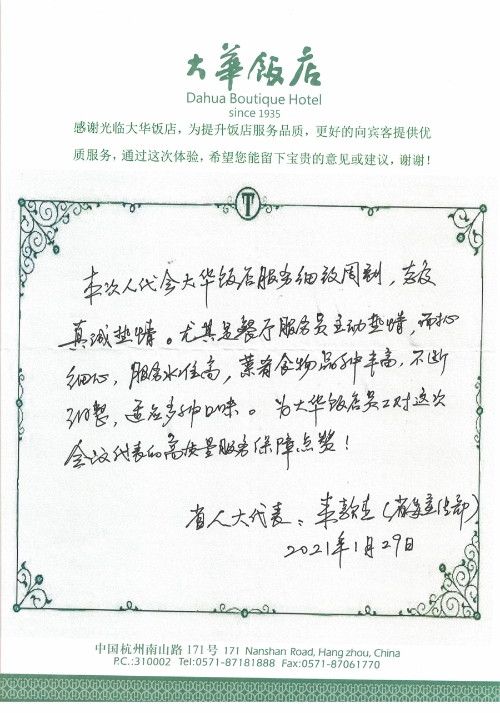 大華飯店
Dahua Boutique Hotel
since 1935
感谢光临大华饭店，为提升饭店服务品质，更好的向宾客提供优
质服务，通过这次体验，希望您能留下宝贵的意见或建议，谢谢！
T
本次人代会大华饭店服务细致周到，态度
真诚热情。尤其是餐厅服务员主动热情，而
细心，服务水准高，菜肴食物品种丰富，不断
调整，适应多种口味。为大华饭店员工对这次
会议代表的高质量服务保障点赞！
省人大代表：
2021年1月29日
中国杭州南山路 171号 171 Nanshan Road, Hang zhou, China
P.C.:310002 Tel:0571-87181888 Fax:0571-87061770